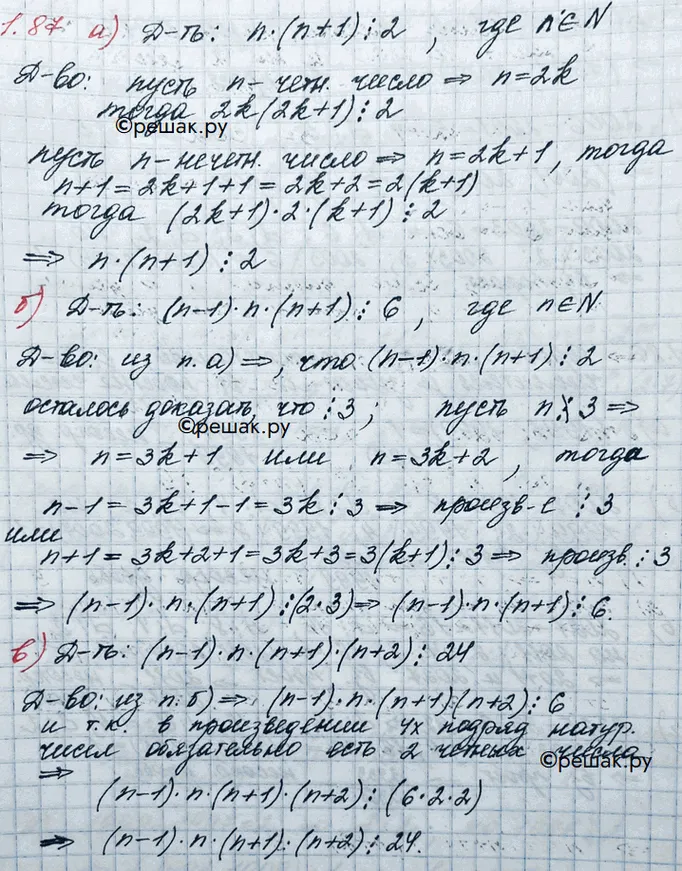 1.87 а) Д-ть: n·(n+1)⋮2, где n∈N
Д-во: пусть n – четн. число ⇒ n=2k
тогда 2k(2k+1)⋮2
©решак.ру
пусть n – нечетн. число ⇒ n=2k+1, тогда
n+1=2k+1+1=2k+2=2(k+1)
тогда (2k+1)·2·(k+1)⋮2
⇒ n·(n+1)⋮2
б) Д-ть: (n-1)·n·(n+1)⋮6, где n∈N
Д-во: из п. а) ⇒, что (n-1)·n·(n+1)⋮2
осталось доказать, что ⋮3; пусть n⋮̸3 ⇒
©решак.ру
⇒ n=3k+1 или n=3k+2, тогда
n-1=3k+1-1=3k⋮3 ⇒ произв-е ⋮3
или
n+1=3k+2+1=3k+3=3(k+1)⋮3 ⇒ произв.⋮3
⇒ (n-1)·n·(n+1)⋮(2·3) ⇒ (n-1)·n·(n+1)⋮6.
в) Д-ть: (n-1)·n·(n+1)·(n+2)⋮24
Д-во: из п. б) ⇒ (n-1)·n·(n+1)(n+2)⋮6
и т.к. в произведении 4х подряд натур.
чисел обязательно есть 2 четных числа
©решак.ру
⇒
(n-1)·n·(n+1)·(n+2)⋮(6·2·2)
⇒ (n-1)·n·(n+1)·(n+2)⋮24.